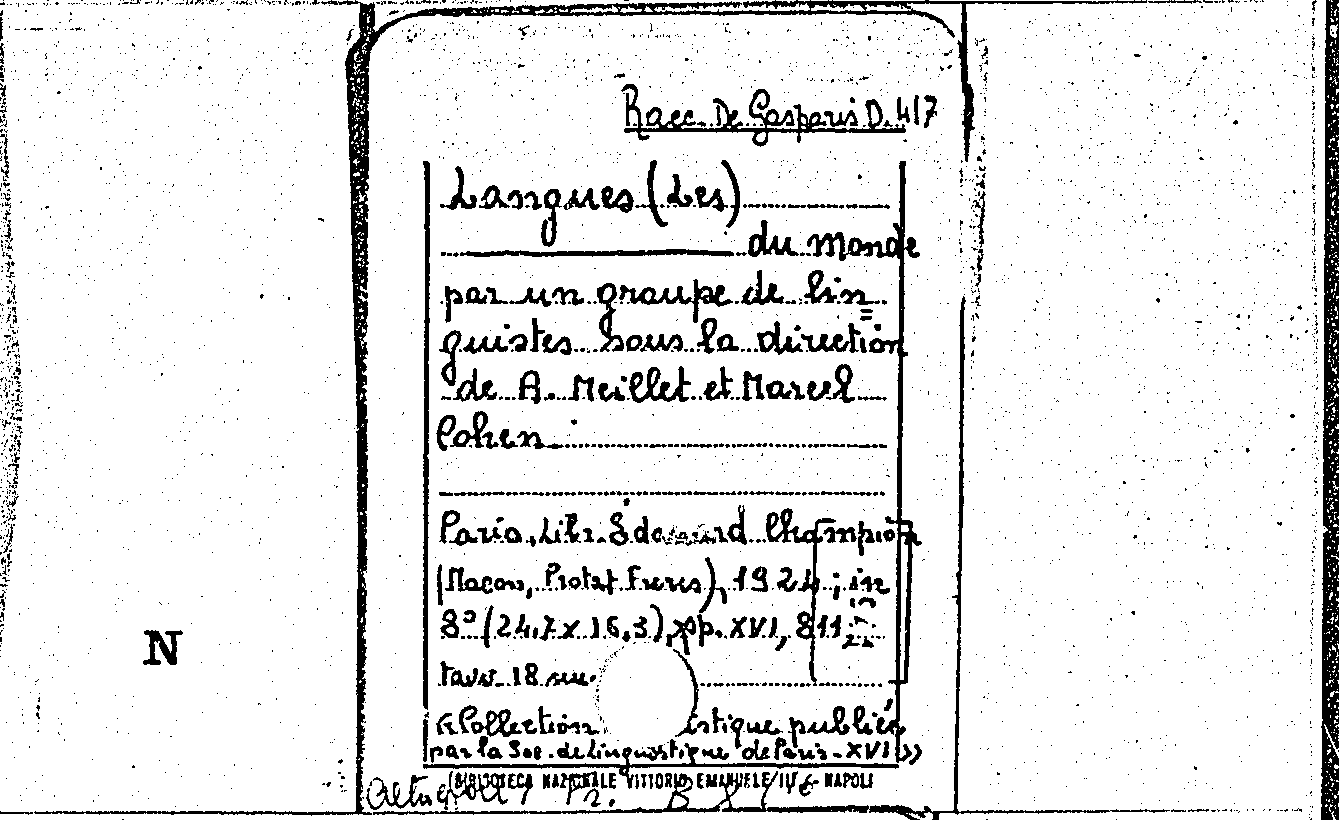 Racc. De Gasparis D. 417
Langues (Les)
du monde
par un groupe de lin=
guistes sous la direction
de A. Meillet et Marcel
Cohen
Paris, Libr. Édouard Champion
(Macon, Protat Freres), 1924; in
8° (24.7 x 16.3), pp. XVI, 811
tavv. 18
«Collection istique publiée
par la Soc. de Linguistique de Paris - XVI»
BIBLIOTECA NAZIONALE VITTORIO EMANUELE III - NAPOLI
N